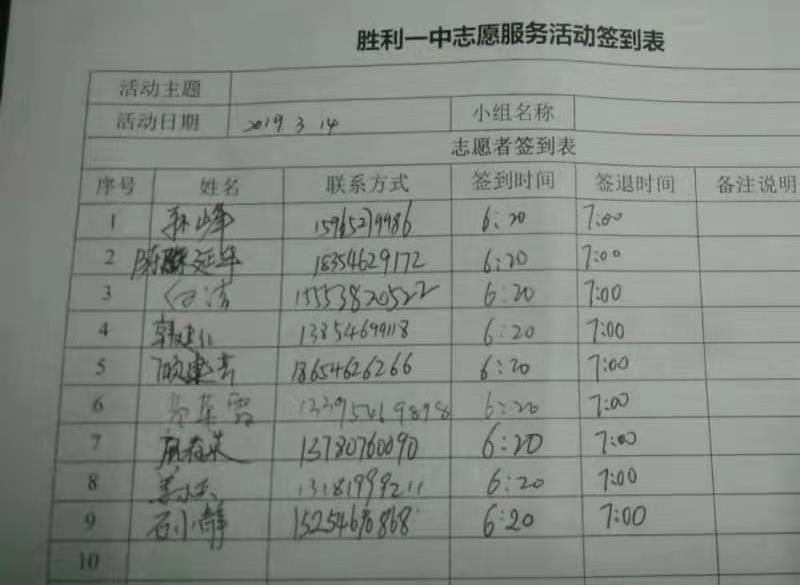 胜利一中志愿服务活动签到表
活动主题
活动日期 2019. 3. 14 小组名称
志愿者签到表
序号 姓名 联系方式 签到时间 签退时间 备注说明
1 孙峰 15965279986 6:20 7:00
2 延华 18354629172 6:20 7:00
3 白洁 15553820522 6:20 7:00
4 13854699118 6:20 7:00
5 18654626266 6:20 7:00
6 13395469898 6:20 7:00
7 13780760090 6:20 7:00
8 13181999211 6:20 7:00
9 石小静 6:20 7:00
10